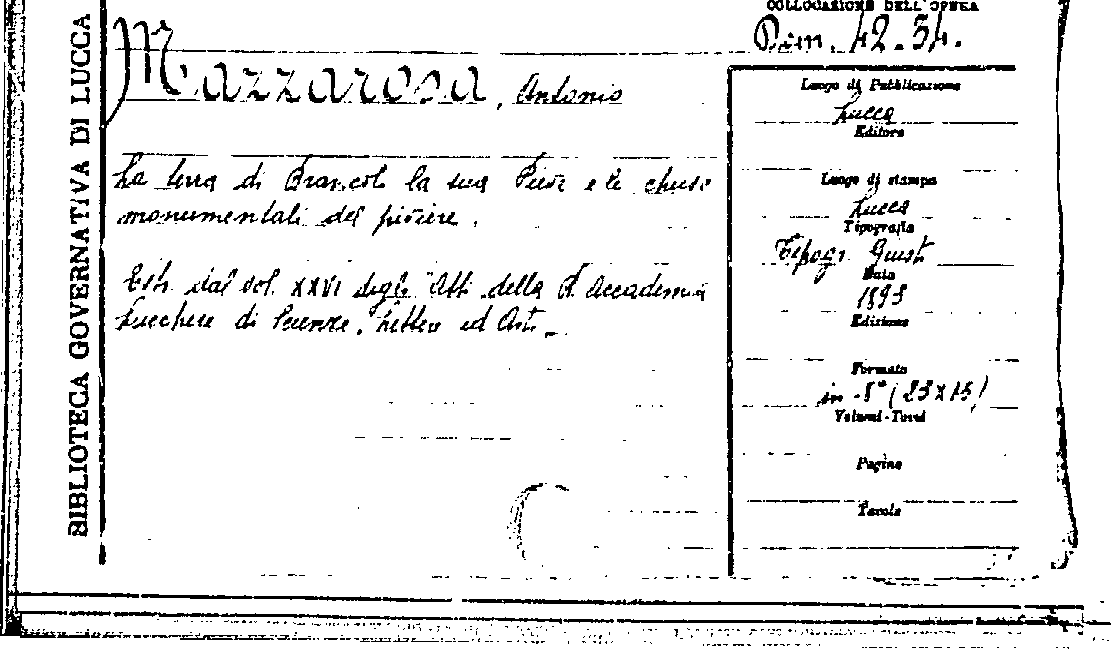 COLLOCAZIONE DELL'OPERA
42.34.
BIBLIOTECA GOVERNATIVA DI LUCCA
Mazzarosa, Antonio
La terra di Brancoli la sua Pieve e le chiese
monumentali del piviere.
Estr. dal vol. XXVI degli Atti della R. Accademia
Lucchese di Scienze, Lettere ed Arti_
Luogo di Pubblicazione
Lucca
Editore
Luogo di stampa
Lucca
Tipografia
Tipogr. Giusti
Data
1893
Edizione
Formato
in-8° (23x15)
Volumi-Tomi
Pagine
Tavole